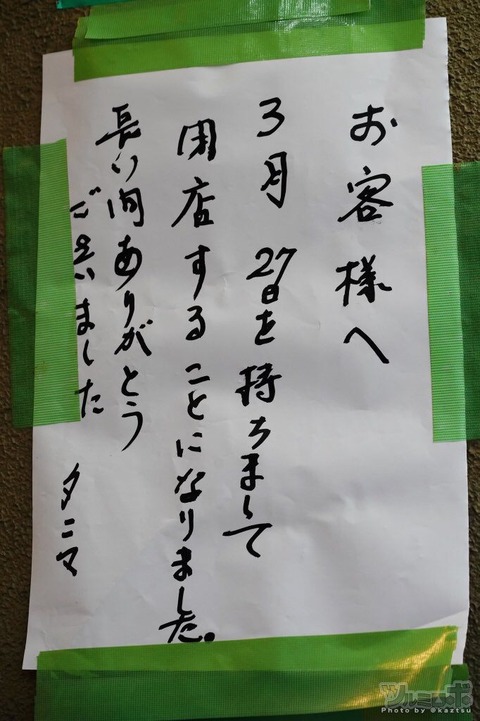 お客様へ
3月27日を持ちまして
閉店することになりました。
長い間ありがとう
ございました
タニマ
Photo by @kaztsu